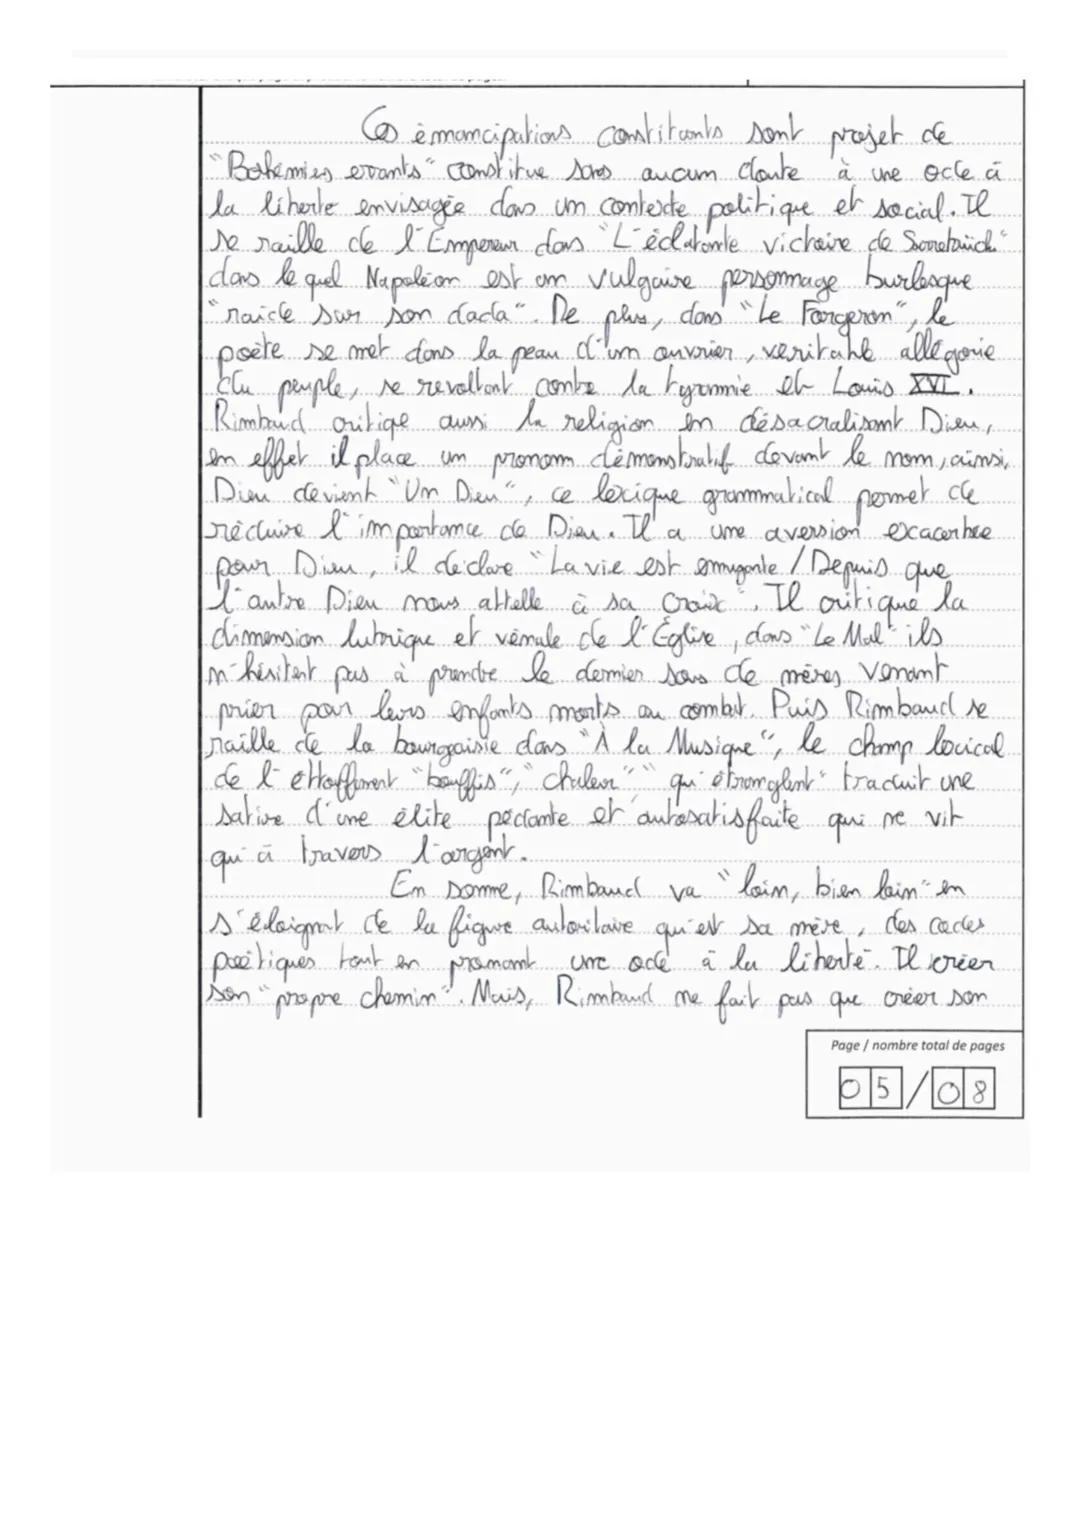 Ces émancipations constituants sont projet de
"Bohémiens errants" constitue sans aucun doute à une ode à
la liberté envisagée dans un contexte politique et social. Il
se raille de l'Empereur dans "L'éclatante victoire de Sarrebrück"
dans lequel Napoléon est un vulgaire personnage burlesque
"raide sur son dada". De plus, dans "Le Forgeron", le
poète se met dans la peau d'un ouvrier, veritable allégorie
du peuple, se revoltant contre la tyrannie et Louis XVI.
Rimbaud critique aussi la religion en désacralisant Dieu,
en effet il place un pronom démonstratif devant le nom, ainsi,
Dieu devient "Un Dieu", ce lexique grammatical permet de
réduire l'importance de Dieu. Il a une aversion exacerbee
pour Dieu, il déclare "La vie est / Depuis que
l'autre Dieu nous attelle à sa croix". Il critique la
dimension lubrique et vénale de l'Église, dans "Le Mal" ils
n'hésitent pas à prendre le dernier sous de mères venant
prier pour leurs enfants morts au combat. Puis Rimbaud se
raille de la bourgeoisie dans "À la Musique", le champ lexical
de l'étouffement "bouffis", "chaleur" "qu'étranglent" traduit une
satire d'une élite pédante et autosatisfaite qui ne vit
qu'à travers l'argent.
En somme, Rimbaud va "loin, bien loin" en
s'éloignant de la figure autoritaire qu'est sa mère, des codes
poétiques tout en pronant une ode à la liberté. Il créer
son "propre chemin". Mais, Rimbaud ne fait pas que créer son
Page / nombre total de pages
05/08